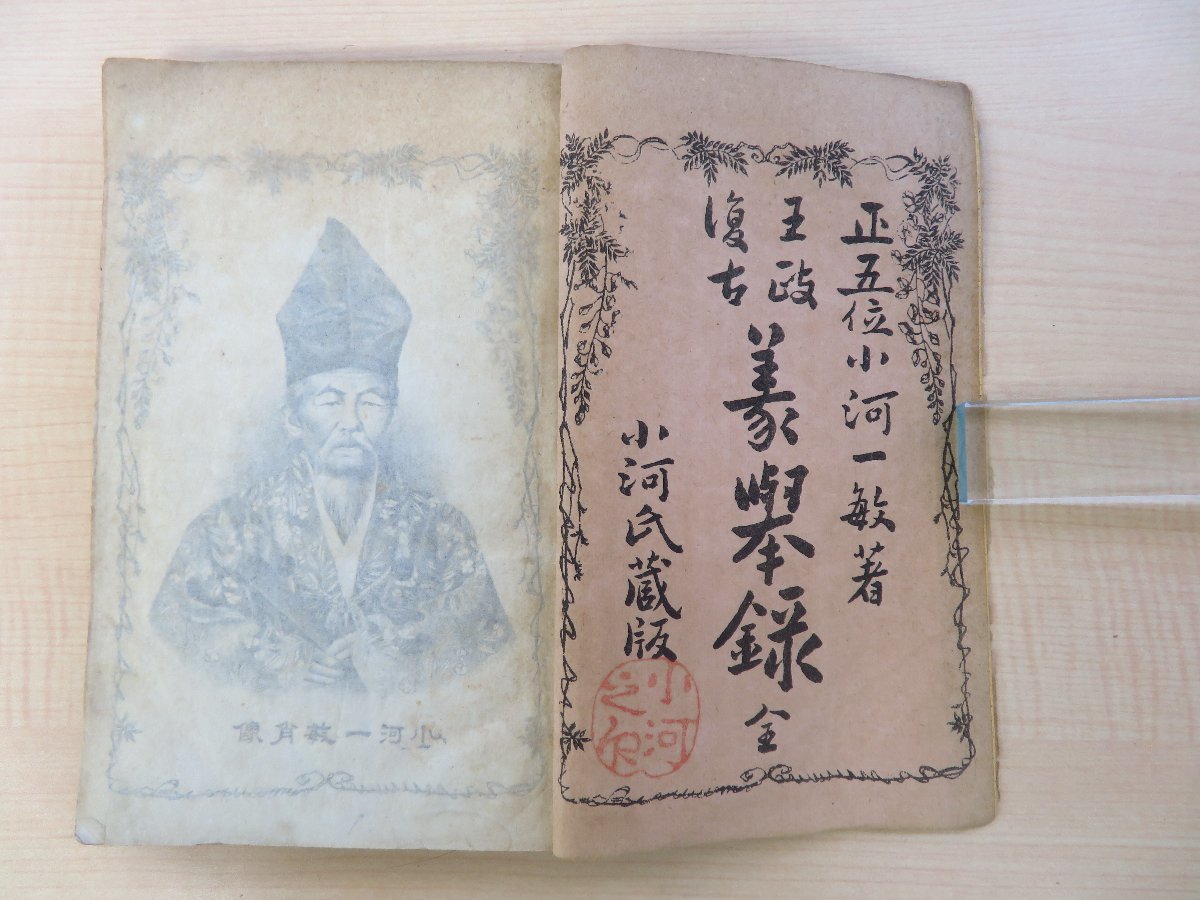 正五位小河一敏著
王政
復古
義舉錄 全
小河氏蔵版
小河
之印
小河一敏肖像